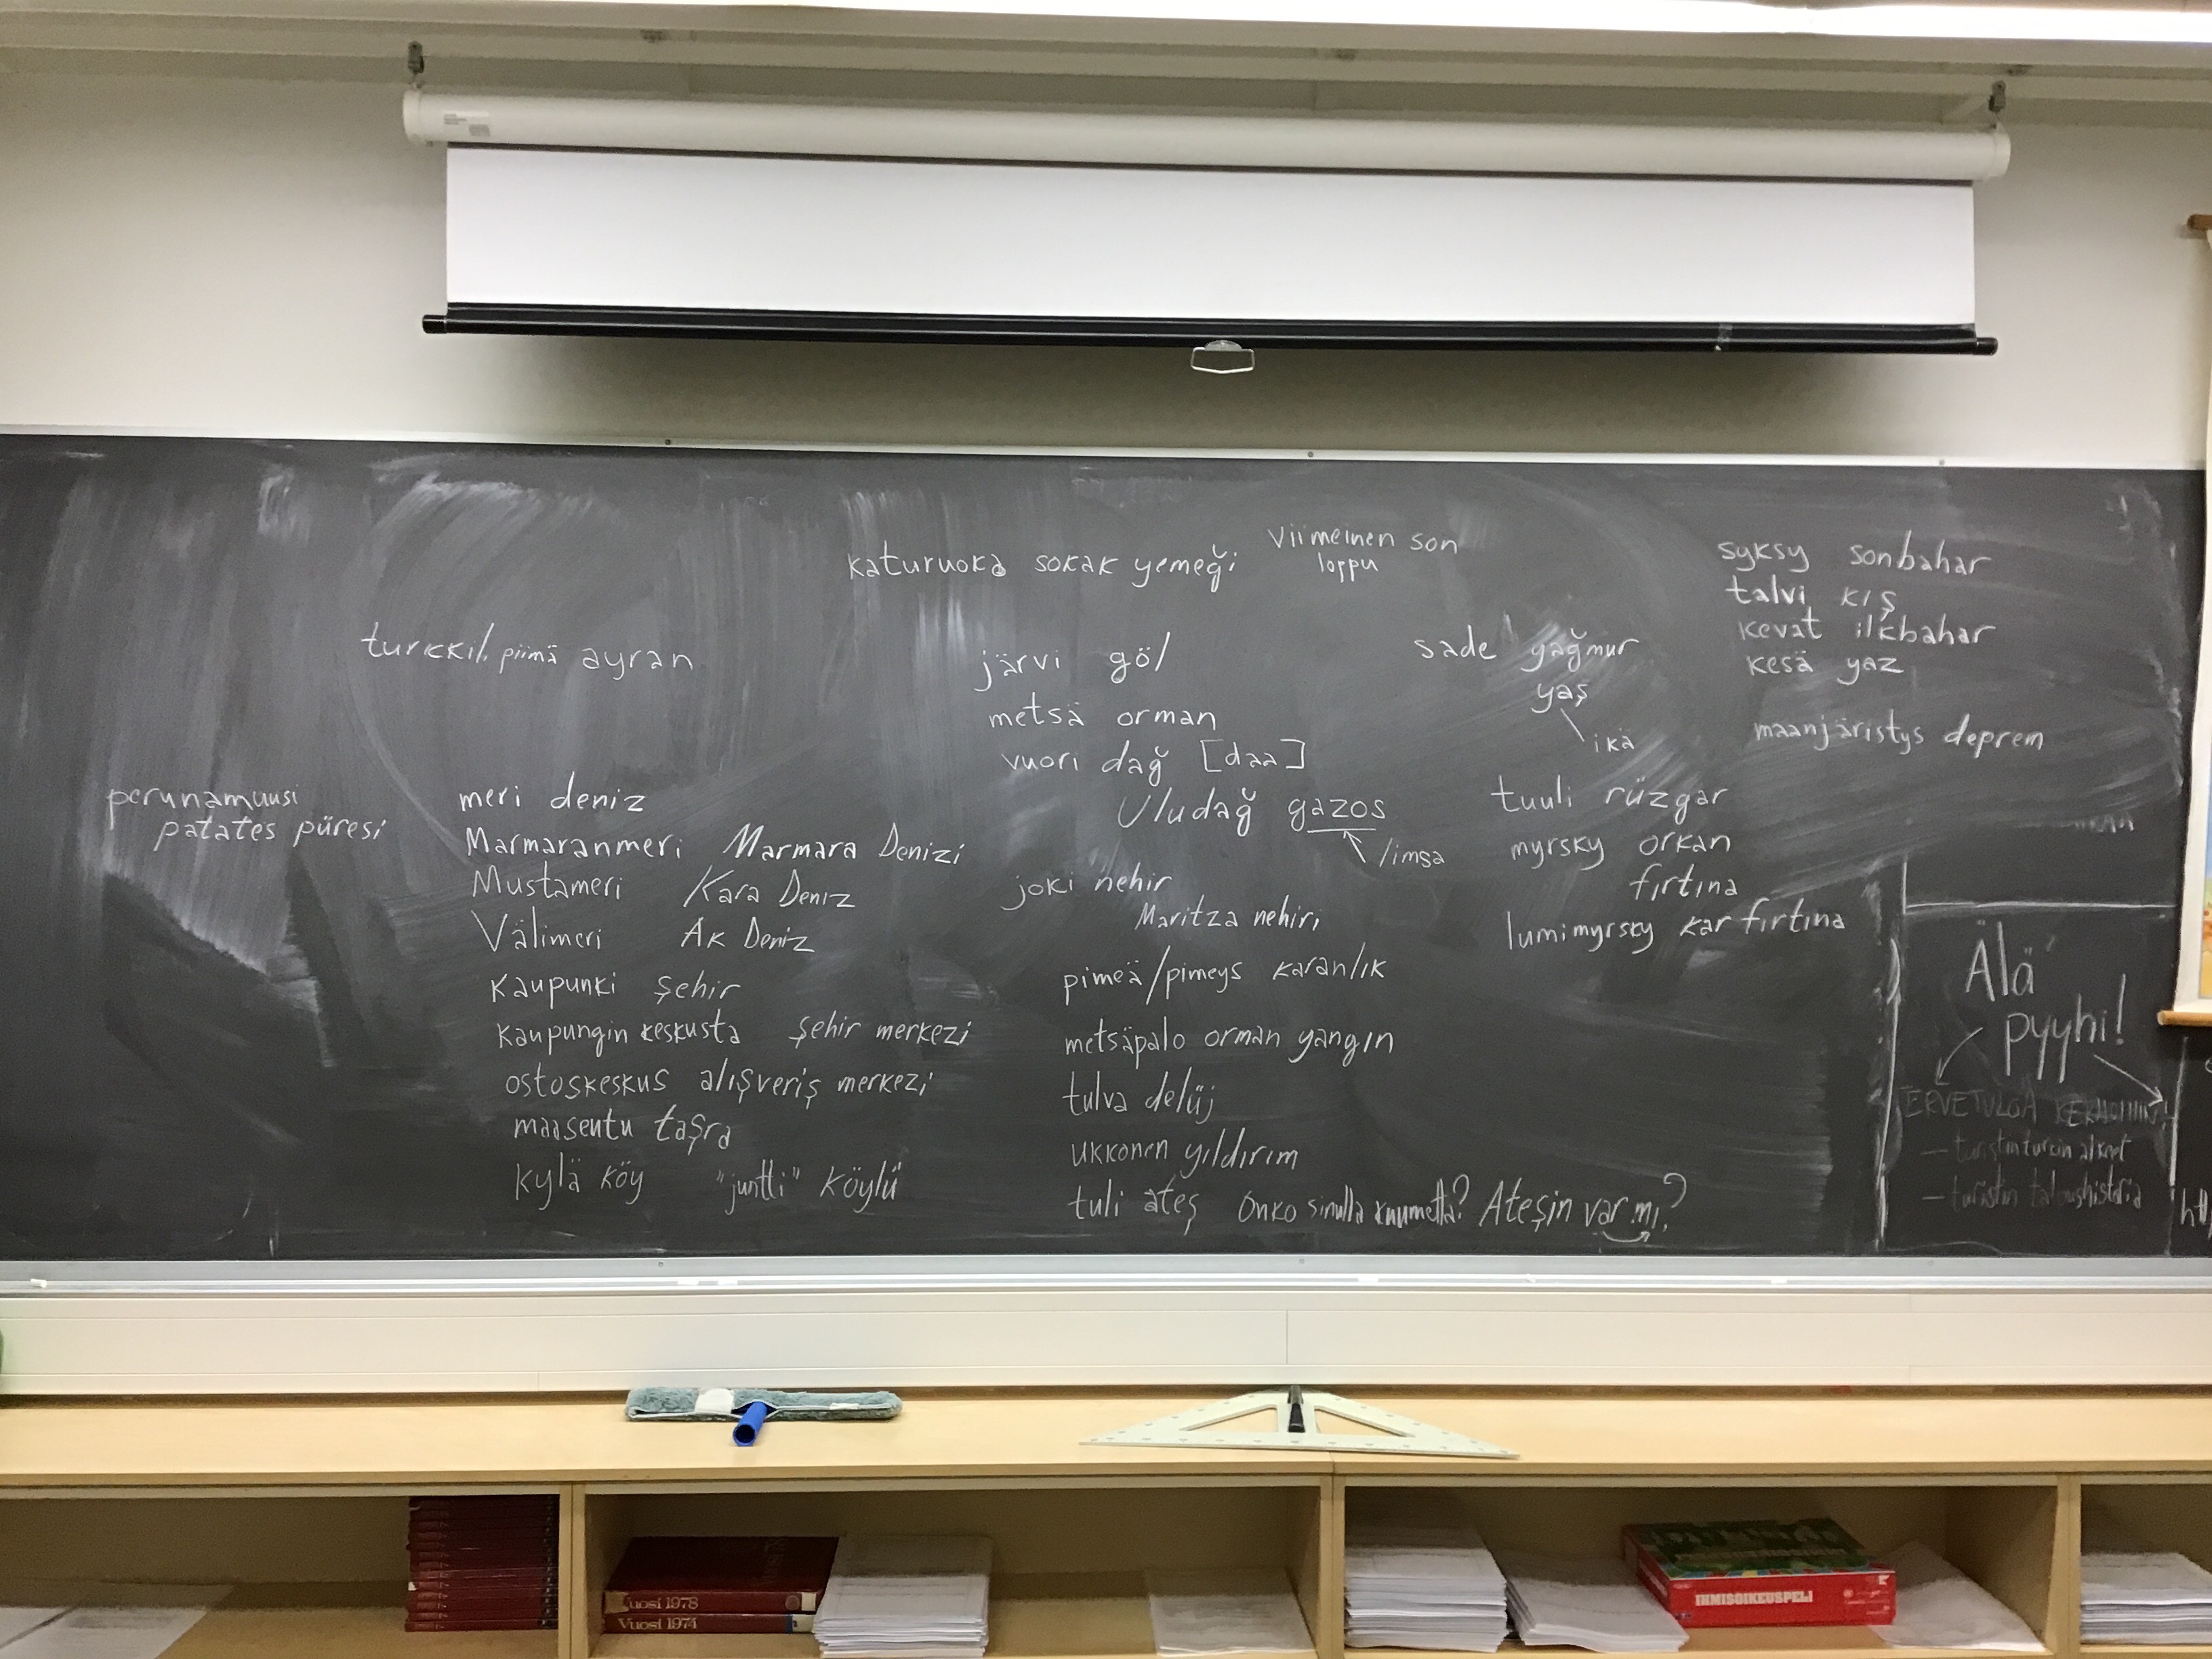 katuruoka sokak yemeği
viimeinen son
loppu
turkkil. piimä ayran
perunamuusi
patates püresi
meri deniz
Marmaranmeri Marmara Denizi
Mustameri Kara Deniz
Välimeri Ak Deniz
kaupunki şehir
kaupungin keskusta şehir merkezi
ostoskeskus alışveriş merkezi
maaseutu taşra
kylä köy "juntti" köylü
järvi göl
metsä orman
vuori dağ [daa]
Uludağ gazos
limsa
joki nehir
Maritza nehiri
pimeä/pimeys karanlık
metsäpalo orman yangın
tulva delüj
ukkonen yıldırım
tuli ateş Onko sinulla tuumetta? Ateşin var mı?
sade yağmur
yaş
ikä
tuuli rüzgar
myrsky orkan
fırtına
lumimyrsky kar fırtına
syksy sonbahar
talvi kış
kevat ilkbahar
kesä yaz
maanjäristys deprem
Älä
pyyhi!
- turistin turcin alkeet
- turistin taloushistoria
Vuosi 1978
Vuosi 1974
IHMISOIKEUSPELI